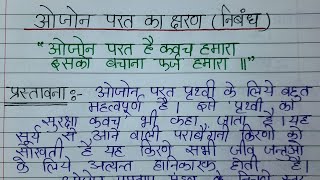 ओजोन परत का क्षरण (निबंध)
"ओजोन परत है कवच हमारा
इसको बचाना फर्ज हमारा॥"
प्रस्तावना:- ओजोन परत पृथ्वी के लिये बहुत
महत्वपूर्ण है। इसे पृथ्वी का
सुरक्षा कवच भी कहा जाता है। यह
सूर्य से आने वाली पराबैंगनी किरणों को
सोखती है यह किरणे सभी जीव जन्तुओ
के लिये अत्यन्त हानिकारक होती है।